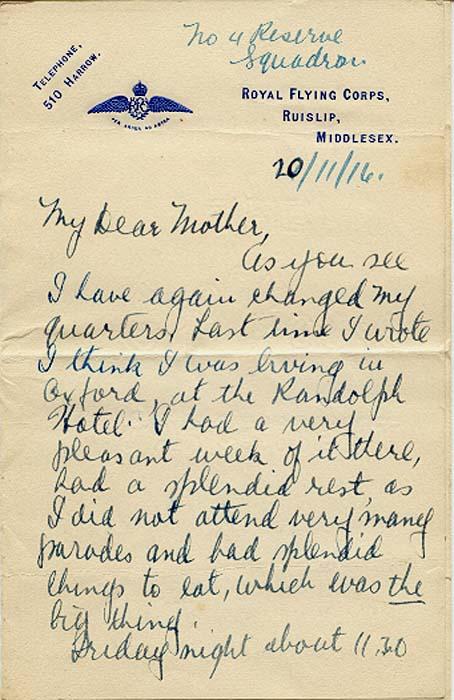 No 4 Reserve
Squadron
TELEPHONE,
510 HARROW.
RFC
PER ARDUA AD ASTRA
ROYAL FLYING CORPS,
RUISLIP,
MIDDLESEX.
20/11/16.
My Dear Mother,
As you see
I have again changed my
quarters. Last time I wrote
I think I was living in
Oxford, at the Randolph
Hotel. I had a very
pleasant week of it there,
had a splendid rest, as
I did not attend very many
parades and had splendid
things to eat, which was the
big thing.
Friday night about 11.30